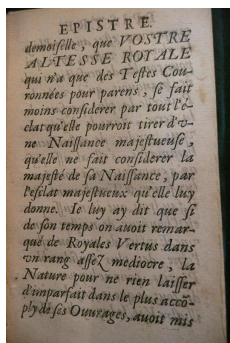 EPISTRE.
demoiselle, que VOSTRE
ALTESSE ROYALE
qui n'a que des Testes Cou-
ronnées pour parens, se fait
moins considerer par tout l'é-
clat qu'elle pourroit tirer d'v-
ne Naissance majestueuse,
qu'elle ne fait considerer la
majesté de sa Naissance, par
l'esclat majestueux qu'elle luy
donne. Ie luy ay dit que si
de son temps on auoit remar-
qué de Royales Vertus dans
vn rang assez mediocre, la
Nature pour ne rien laisser
d'imparfait dans le plus accõ-
ply de ses Ouurages, auoit mis